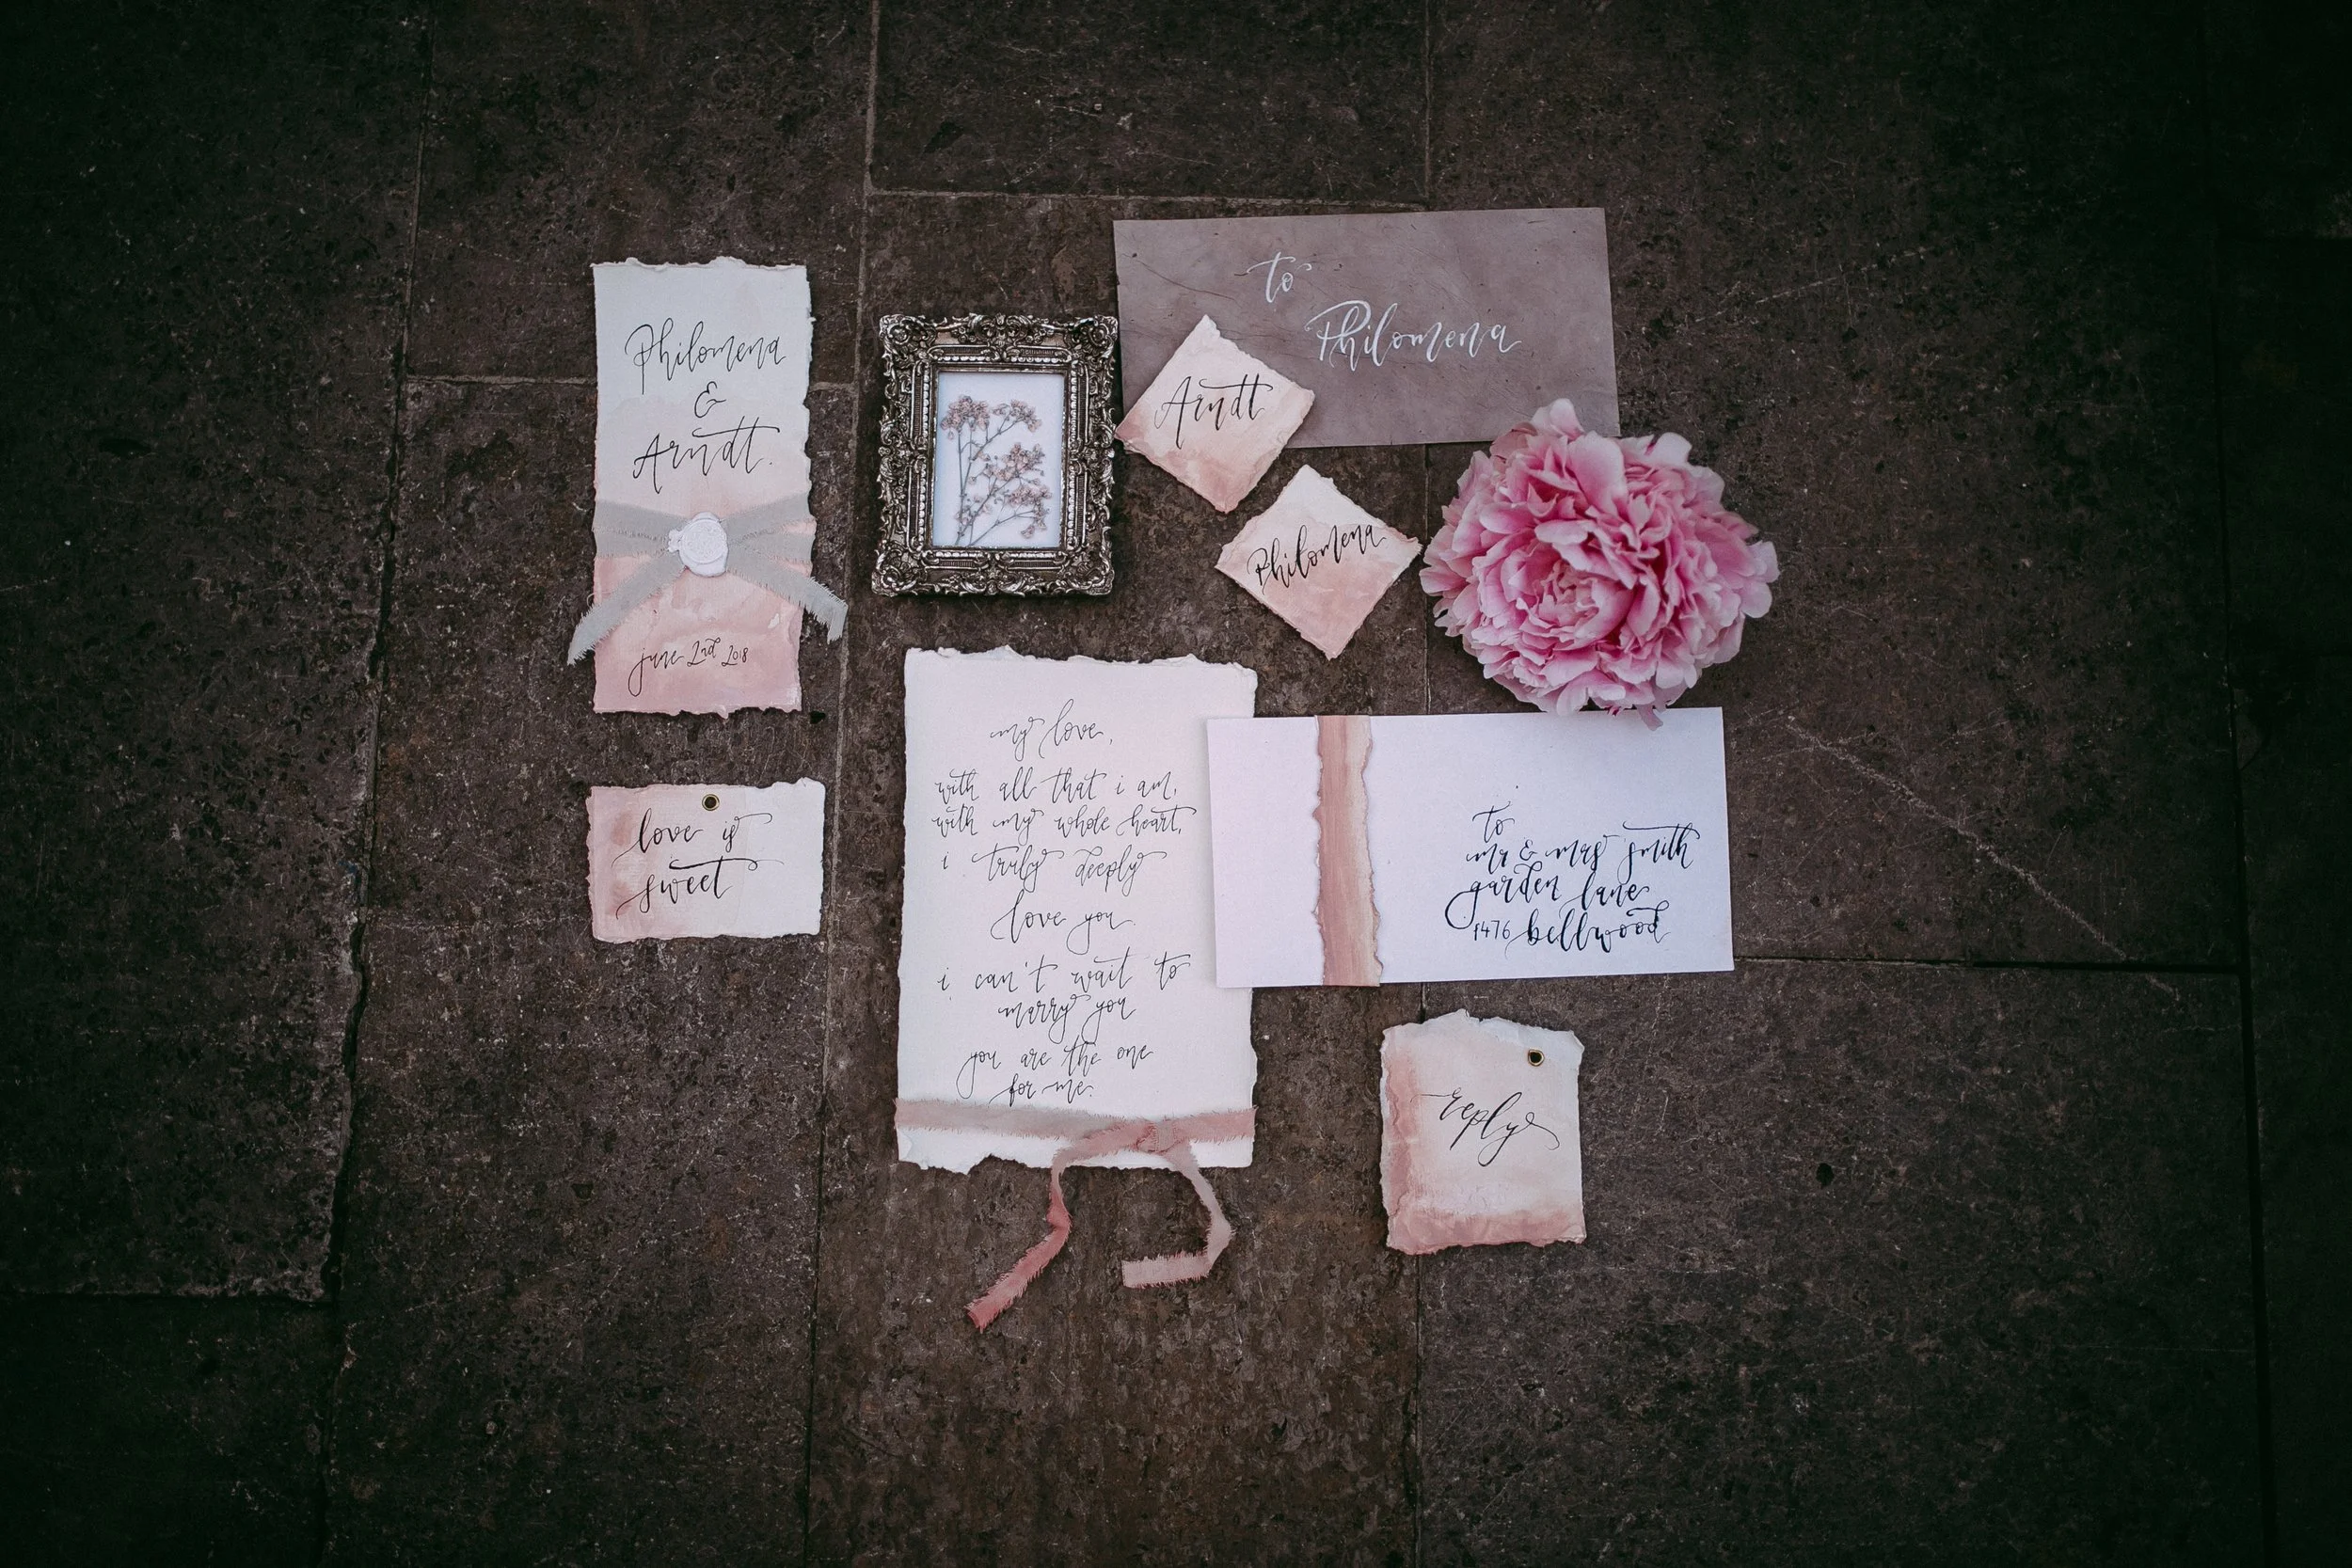 Philomena
&
Arndt.
june 2nd 2018
to
Philomena
Arndt
Philomena
love is
sweet
my love,
with all that i am,
with my whole heart,
i truly deeply
love you.
i can't wait to
marry you
you are the one
for me.
to
mr & mrs smith
garden lane
1476 bellwood
reply